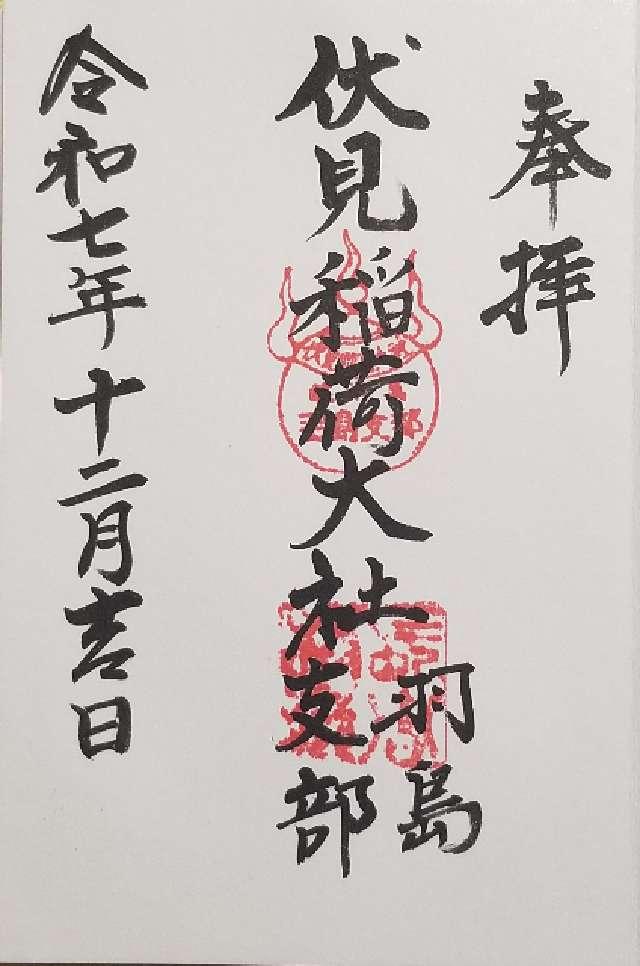 奉拝
伏見稲荷大社
羽島
支部
令和七年十二月吉日